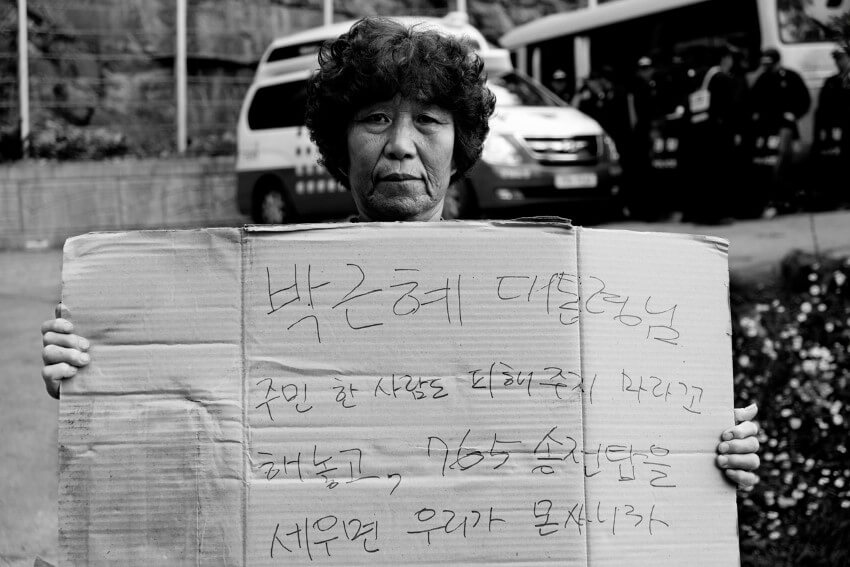 박근혜 대통령님
주민 한 사람도 피해주지 마라꼬
해놓고, 765 송전탑을
세우면 우리가 몬사니까